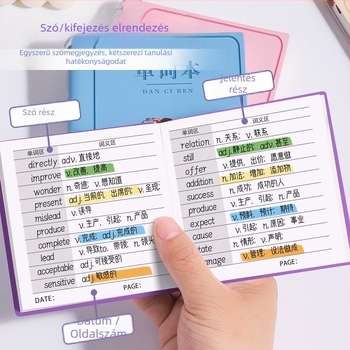 Szó/kifejezés elrendezés
Egyszerű szómegjegyzés, kétszerezi tanulási
hatékonyságodat
单词本
DAN CI BEN
Jelentés
rész
Szó rész
单词区 词义区
directly adv. 直接地
improve v. 改善; 提高
wonder n. 奇迹; v. 想知道
present adj. 当前的; 出席的; v. 呈现
mislead v. 误导
produce v. 生产; 引起; n. 产品
complete v. 完成; adj. 完成的
lead v. 导致to, 带领; n. 领头
acceptable adj. 可接受的
sensitive adj. 敏感的
DATE: PAGE:
单词区 词义区
relation n. 关系; v. 联系
still adj. 静止的; adv. 甚至
offer v. 提供; 出价; 愿意做
addition n. 加法; 增加; 添加物
success n. 成功; 成功的人
produce v. 生产; 引起; n. 产品
expect v. 预料; 预计; 期待
cause v. 引起; n. 原因; 事业
state n. 情形; v. 声明;
manage v. 管理; 设法做成
PAGE:
Dátum /
Oldalszám